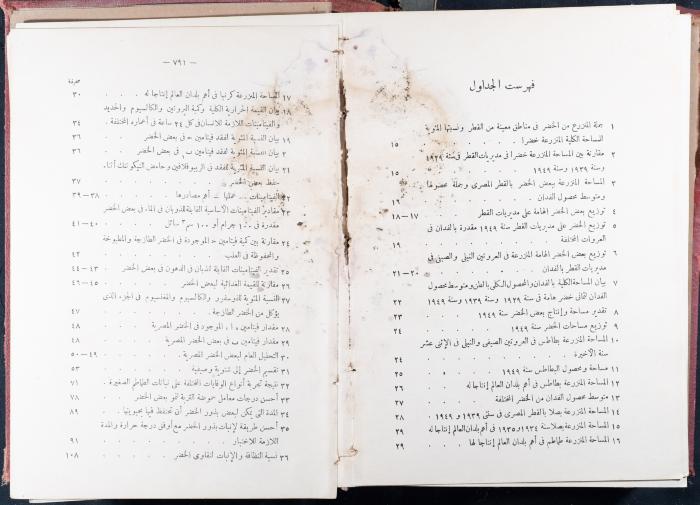 فهرست الجداول
١ جملة المنزرع من الخضر فى مناطق معينة من القطر ونسبتها المئوية
للمساحة الكلية المنزرعة خضرا . . . ١٥
٢ مقارنة بين المساحة المنزرعة خضرا فى مديريات القطر فى سنة ١٩٢٩
وسنة ١٩٣٩ وسنة ١٩٤٩ . . . ١٥
٣ المساحة المنزرعة ببعض الخضر بالقطر المصرى وجملة محصولها
ومتوسط محصول الفدان . . . ١٦
٤ توزيع بعض الخضر الهامة على مديريات القطر ١٧—١٨
٥ توزيع الخضر على مديريات القطر سنة ١٩٤٩ مقدرة بالفدان فى
العروات المختلفة . . . ١٩
٦ توزيع بعض الخضر الهامة المنزرعة فى العروتين النيلى والصيفى فى
مديريات القطر بالفدان . . . ٢٠—٢١
٧ بيان المساحة الكلية بالفدان والمحصول الكلى بالطن ومتوسط محصول
الفدان لثمانى خضر هامة فى سنة ١٩٢٩ وسنة ١٩٣٩ وسنة ١٩٤٩ ٢٢
٨ تقدير مساحة وإنتاج بعض الخضر سنة ١٩٤٩ . . ٢٣
٩ توزيع مساحات الخضر سنة ١٩٤٩ . . . ٢٤
١٠ المساحة المنزرعة بطاطس فى العروتين الصيفى والنيلى فى الإثنى عشر
سنة الأخيرة . . . ٢٤
١١ مساحة ومحصول البطاطس سنة ١٩٤٩ . . . ٢٥
١٢ المساحة المنزرعة بطاطس فى أهم بلدان العالم إنتاجا له . . ٢٦
١٣ متوسط محصول الفدان من الخضر المختلفة . . . ٢٧
١٤ المساحة المنزرعة بصلا بالقطر المصرى فى سنتى ١٩٣٩ و ١٩٤٩ ٢٨
١٥ المساحة المنزرعة بصلا سنة ١٩٣٤ و ١٩٣٥ فى أهم بلدان العالم إنتاجا له ٢٩
١٦ المساحة المنزرعة طماطم فى أهم بلدان العالم إنتاجا لها . . ٢٩
— ٧٩١ —
صحيفة
١٧ المساحة المنزرعة كرنبا فى أهم بلدان العالم إنتاجا له . . . ٣٠
١٨ بيان القيمة الحرارية الكلية وكمية البروتين والكالسيوم والحديد
والفيتامينات اللازمة للانسان فى كل ٢٤ ساعة فى أعماره المختلفة . ٣٤
١٩ بيان النسبة المئوية لفقد فيتامين ح فى بعض الخضر . . ٣٦
بيان النسبة المئوية لفقد فيتامين ب فى بعض الخضر . . ٣٦
بيان النسبة المئوية للفقد فى الريبوفلافين وحامض النيكوتنك أثناء
حفظ بعض الخضر . . . ٣٧
٢٢ الفيتامينات . عملها — أهم مصادرها . . ٣٨—٣٩
٢٣ مقادير الفيتامينات الأساسية القابلة للذوبان فى الماء فى بعض الخضر
مقدرة فى ١٠٠ جرام أو ١٠٠ سم٣ سائل . . ٤٠—٤١
٢٤ مقارنة بين كمية فيتامين ح الموجودة فى الخضر الطازجة والمطبوخة
والمحفوظة فى العلب . . . ٤٢
٢٥ تقدير الفيتامينات القابلة للذوبان فى الدهون فى بعض الخضر ٤٣—٤٤
٢٦ مقارنة للقيمة الغذائية لبعض الخضر . . ٤٥—٤٦
٢٧ النسبة المئوية للفوسفور والكالسيوم والمغنسيوم فى الجزء الذى
يؤكل من الخضر الطازجة . . . ٤٧
٢٨ مقدار فيتامين ا ، الموجود فى الخضر المصرية . . ٤٨
٢٩ مقدار فيتامين ب فى بعض الخضر المصرية . . ٤٨
٣٠ التحليل العام لبعض الخضر المصرية . . ٤٩—٥٠
٣١ تقسيم الخضر إلى شتوية وصيفية . . . ٥٣
٣٢ نتيجة تجربة أنواع الوقايات المختلفة على نباتات الطماطم الصغيرة . . ٧١
٣٣ أحسن درجات معامل حموضة التربة لنمو بعض الخضر . ٧٨
٣٤ المدة التى يمكن لبعض بذور الخضر أن تحتفظ فيها بحيويتها . . ٨٩
٣٥ أحسن طريقة لإنبات بذور الخضر مع أوفق درجة حرارة والمدة
اللازمة للاختبار . . . ٩١
٣٦ نسبة النظافة والإنبات لتقاوى الخضر . . . ١٠٨